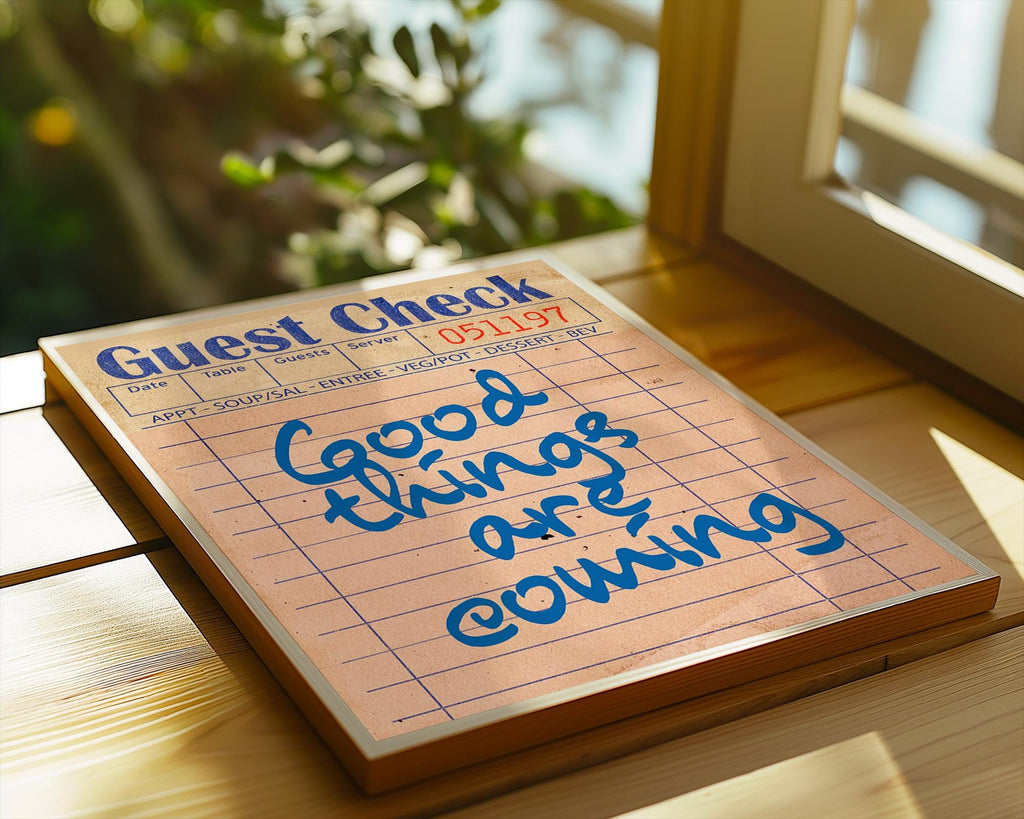 Guest Check
Date Table Guests Server 051197
APPT - SOUP/SAL - ENTREE - VEG/POT - DESSERT - BEV
Good
things
are
coming